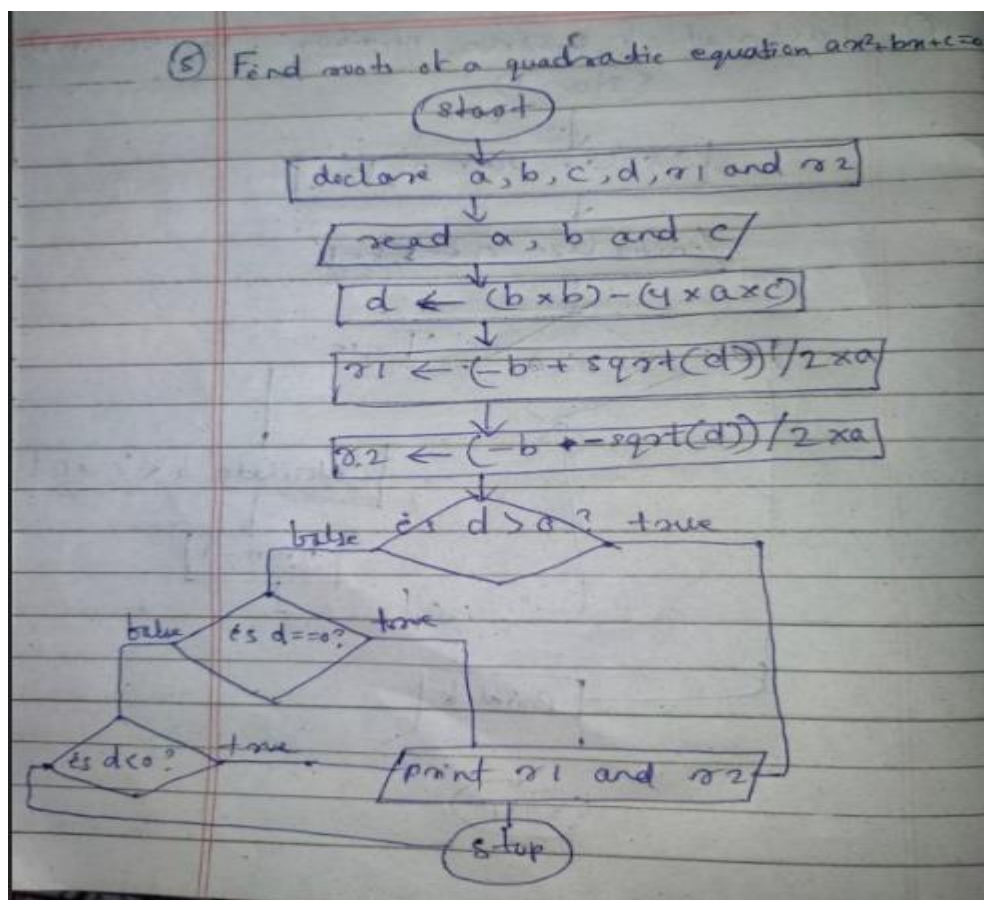 5 Find roots of a quadradic equation ax²+bx+c=0
start
declare a, b, c, d, r1 and r2
read a, b and c
d ← (b x b) - (4 x a x c)
r1 ← (-b + sqrt(d))/2 x a
r2 ← (-b - sqrt(d))/2 x a
false is d > 0 ? true
false is d==0? true
is d<0 ? true
print r1 and r2
stop